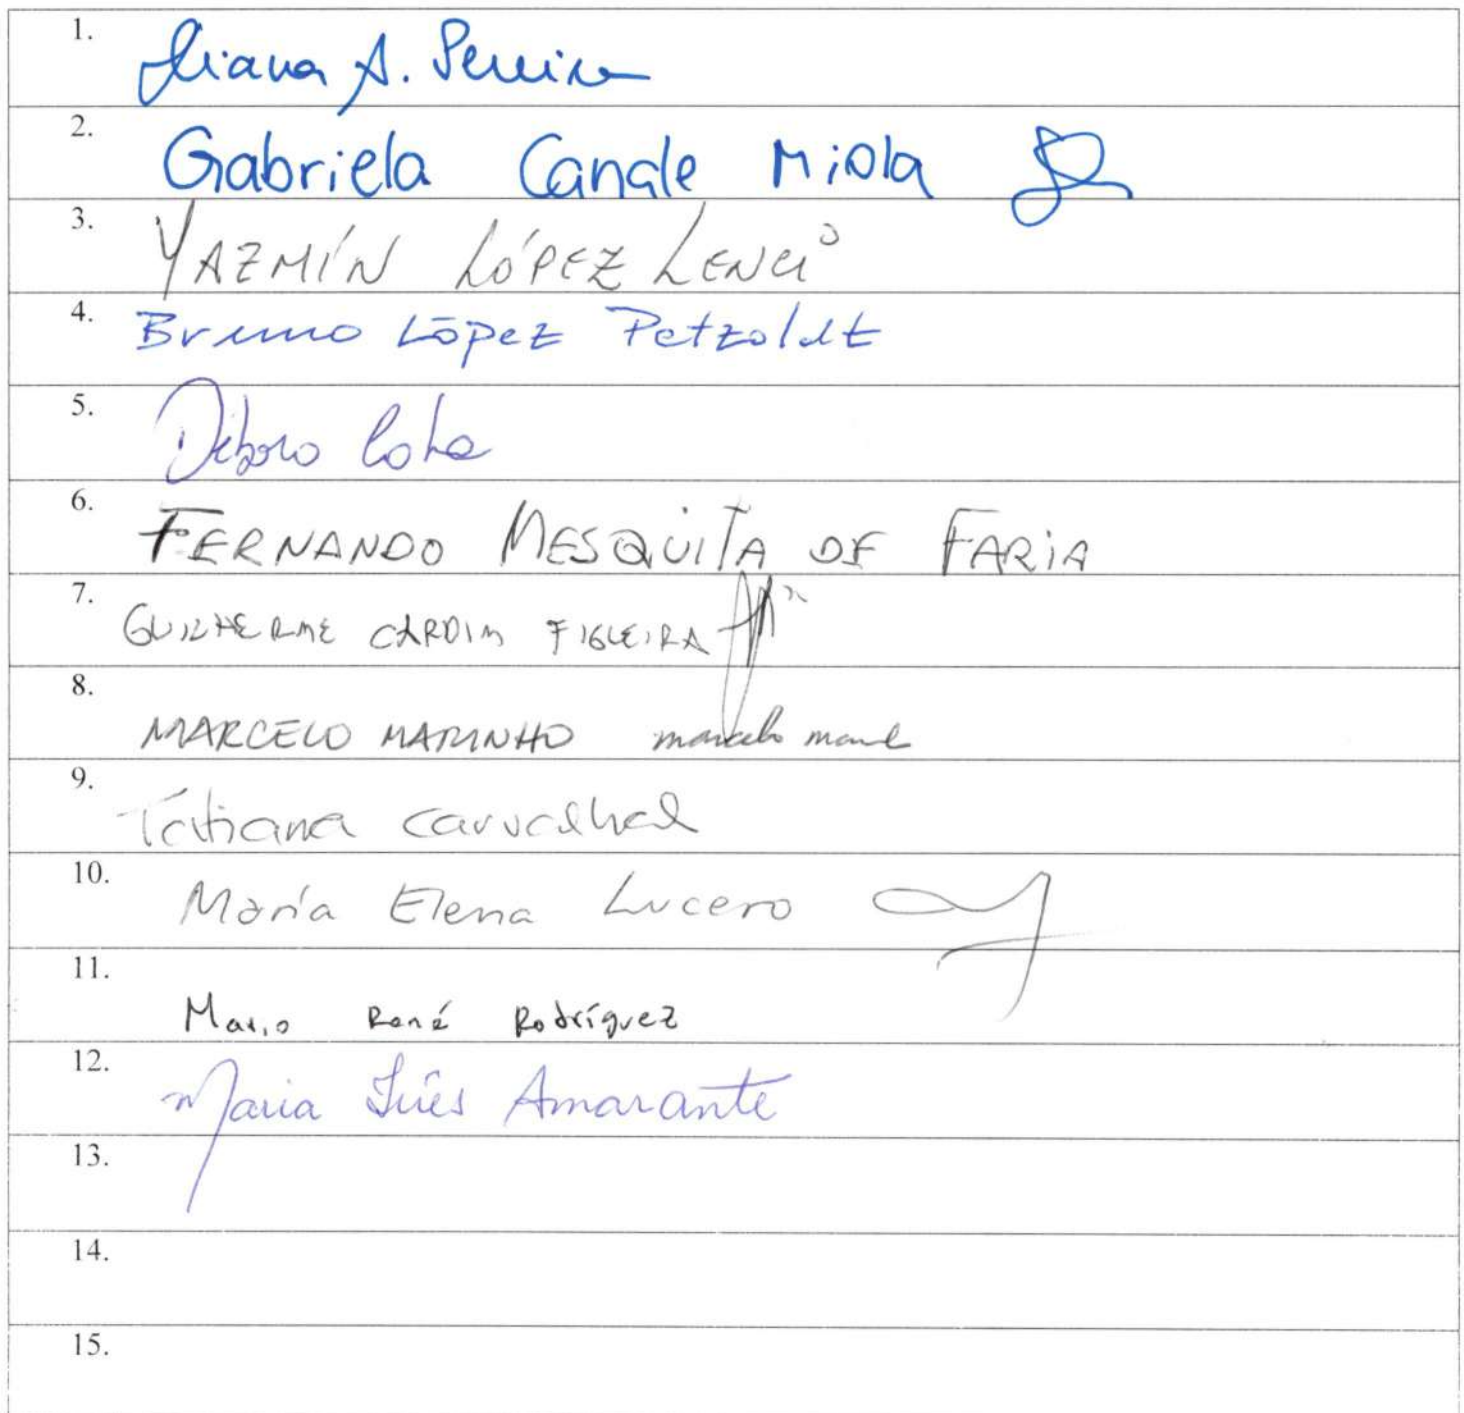 1. A. Pereira
2. Gabriela Canale Miola
3. YAZMÍN LÓPEZ LENCI
4. Bruno López Petzoldt
5. Débora Cota
6. FERNANDO MESQUITA DE FARIA
7. GUILHERME CARDIM FIGUEIRA
8. MARCELO MARINHO marcelo
9. Tatiana Carvalhal
10. María Elena Lucero
11. Mario René Rodríguez
12. Maria Inês Amarante
13.
14.
15.